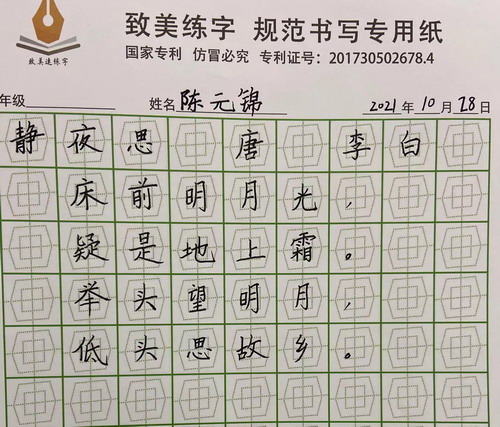 致美练字 规范书写专用纸
致美速练字
国家专利 仿冒必究 专利证号：201730502678.4
年级 姓名 陈元锦 2021年10月28日
静夜思 唐 李白
床前明月光，
疑是地上霜。
举头望明月，
低头思故乡。